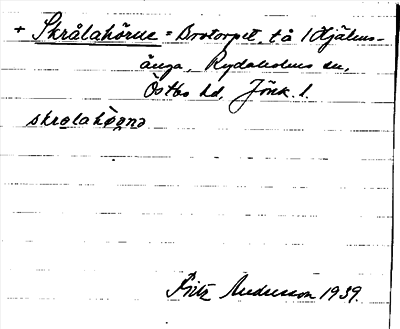 + Skrålahörne = Brotorpet, t å 1 Hjälms-
änga, Rydaholms sn,
Östbo hd, Jönk. l.
skrolahö̱ṉnə
Fritz Andersson 1939.